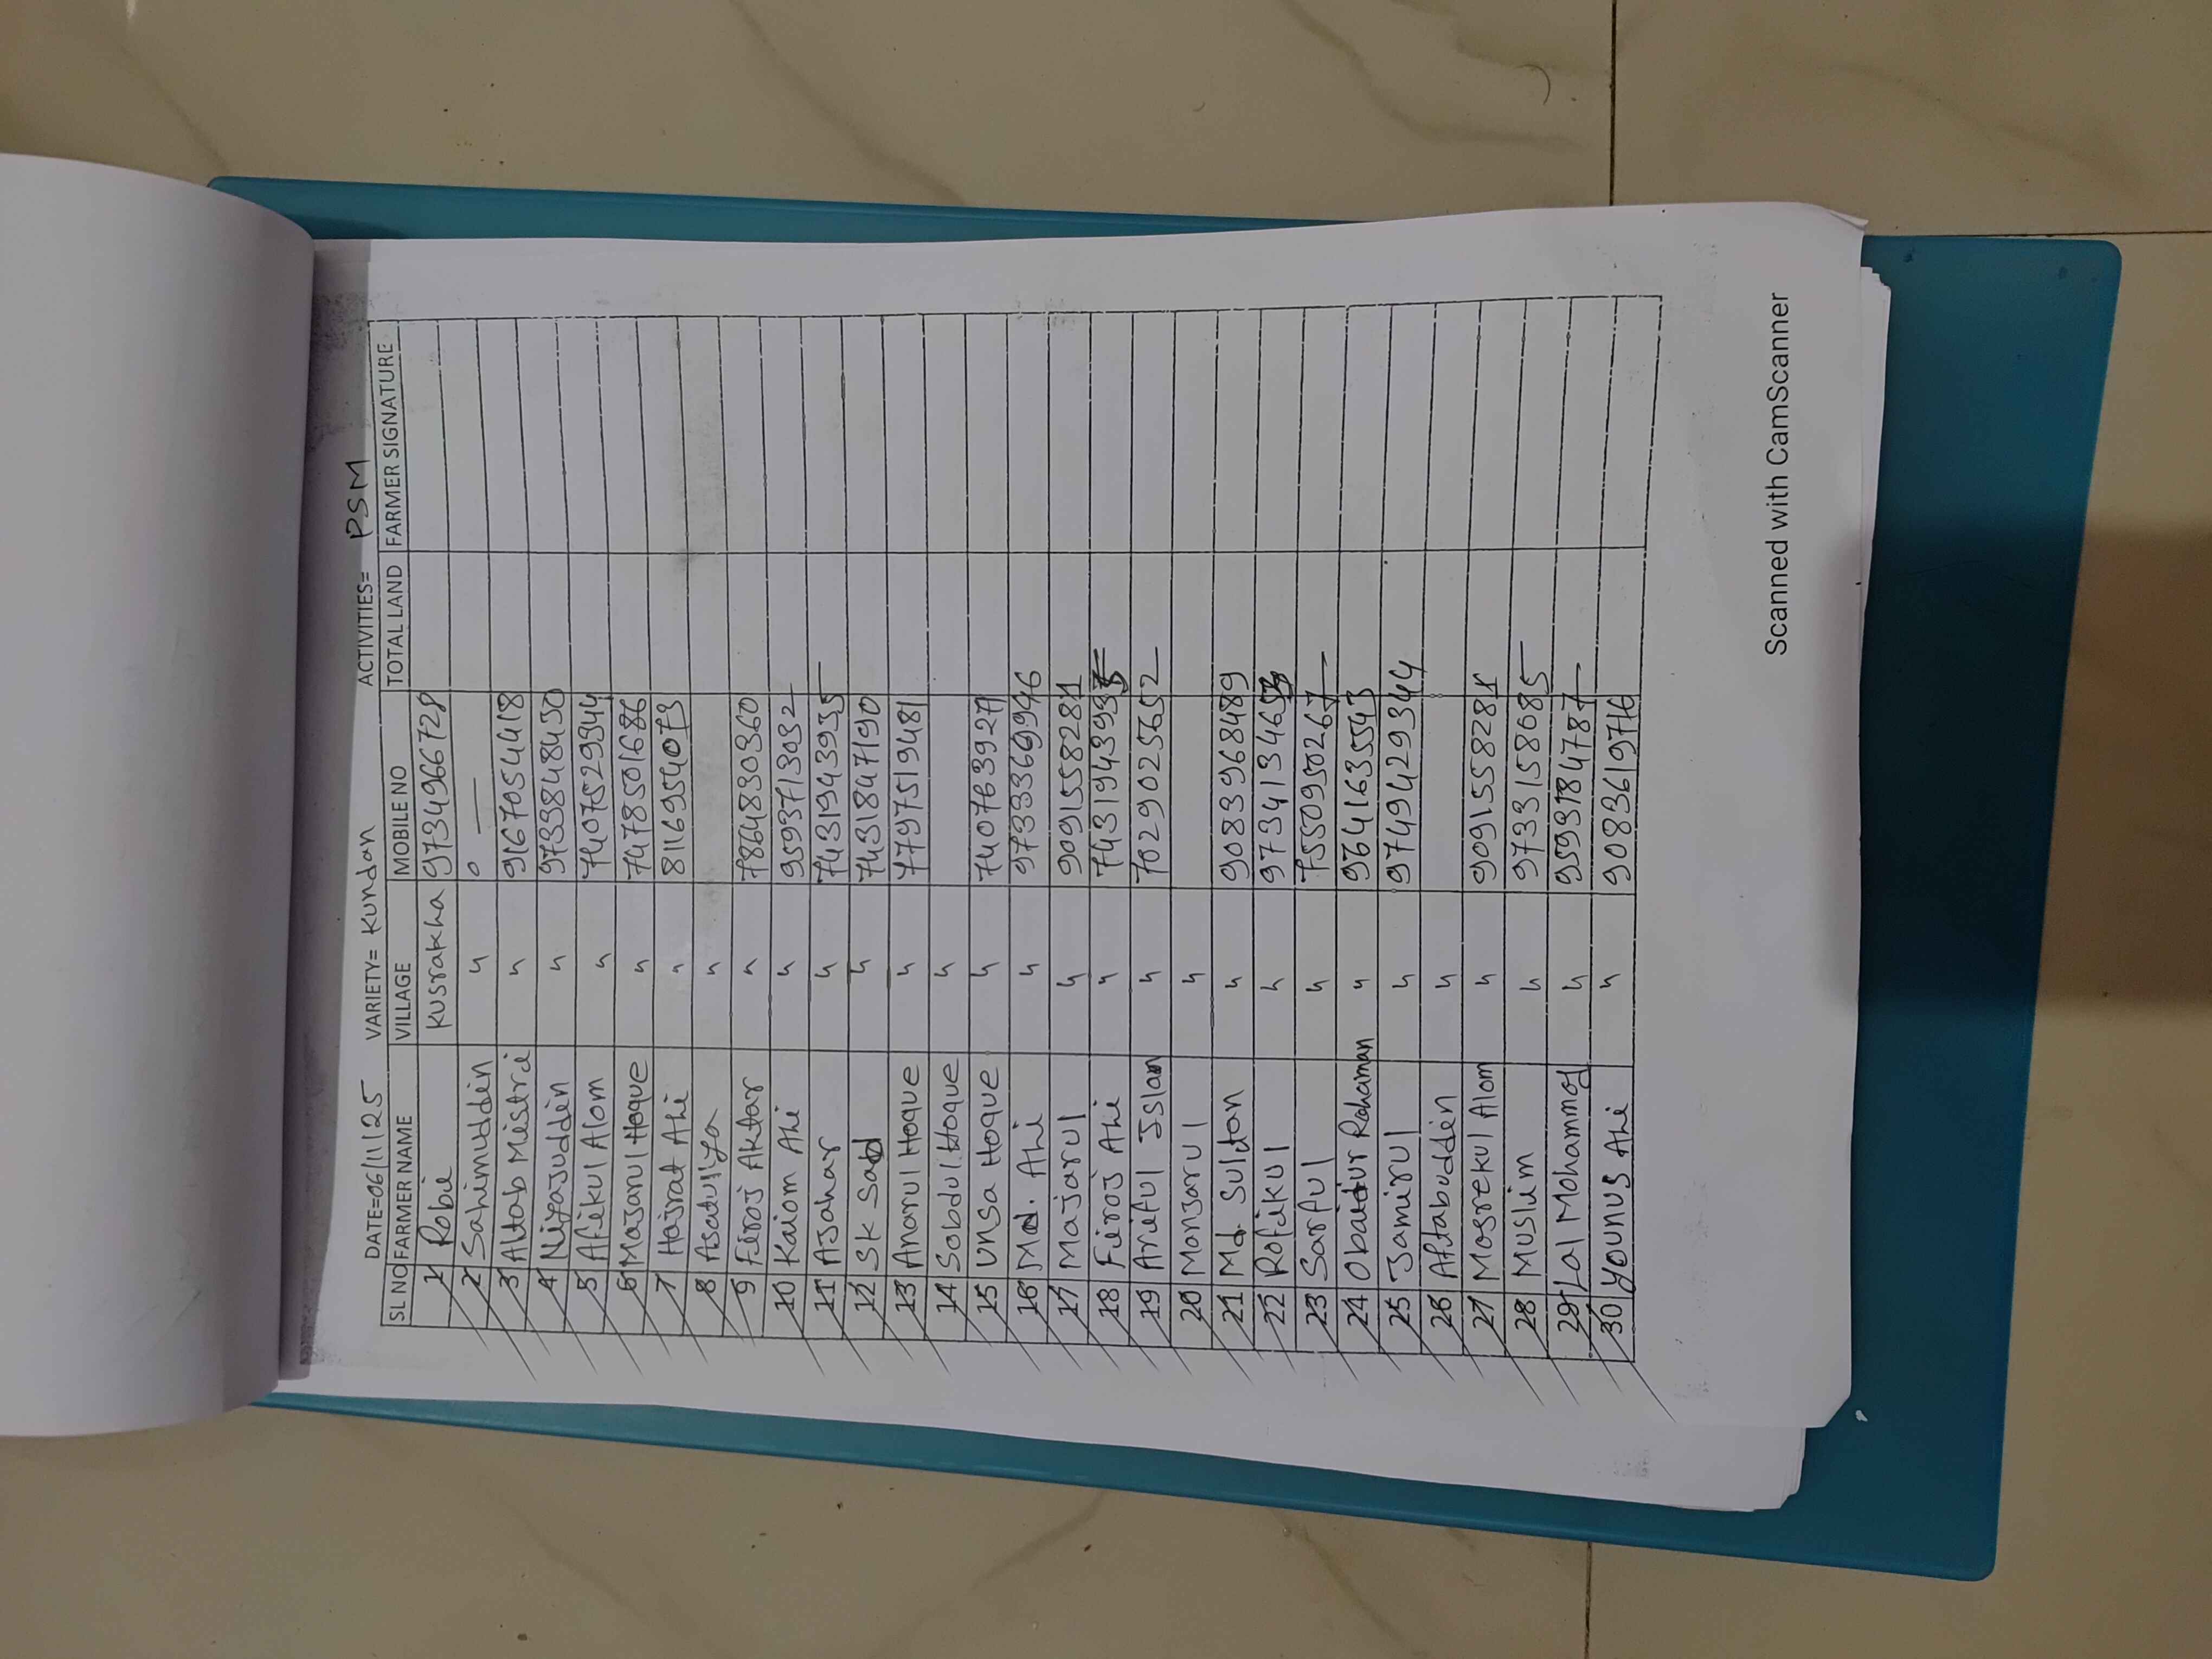 DATE=06/11/25 VARIETY= Kundan ACTIVITIES= PSM
SL NO FARMER NAME VILLAGE MOBILE NO TOTAL LAND FARMER SIGNATURE
1 Robil Kusrakha 9734966728
2 Sahimuddin " 0 —
3 Altab Mistri " 9167054418
4 Niyajuddin " 9733848450
5 Afikul Alom " 7407529344
6 Majarul Hoque " 7478501686
7 Hajrat Ali " 8116954073
8 Asatulya "
9 Firoj Aktar " 7864830360
10 Kaiom Ali " 9593713032
11 AJahar " 7431943935
12 SK Sad " 7431847190
13 Anarul Hoque " 7797519481
14 Sobdul Hoque "
15 Unsa Hoque " 7407639271
16 Md. Ali " 9733369946
17 Majarul " 9091558281
18 Firoj Ali " 743194393
19 Ariful Islam " 7029025652
20 Monjarul "
21 Md. Sultan " 9083968489
22 Rofikul " 973413465
23 Sarful " 7550950267
24 Obaidur Rahaman " 9641635543
25 Jamirul " 9749429344
26 Aftabuddin "
27 Mosrekul Alom " 9091558281
28 Muslim " 9733158685
29 Lal Mohammod " 9593184787
30 Younus Ali " 9083619716
Scanned with CamScanner